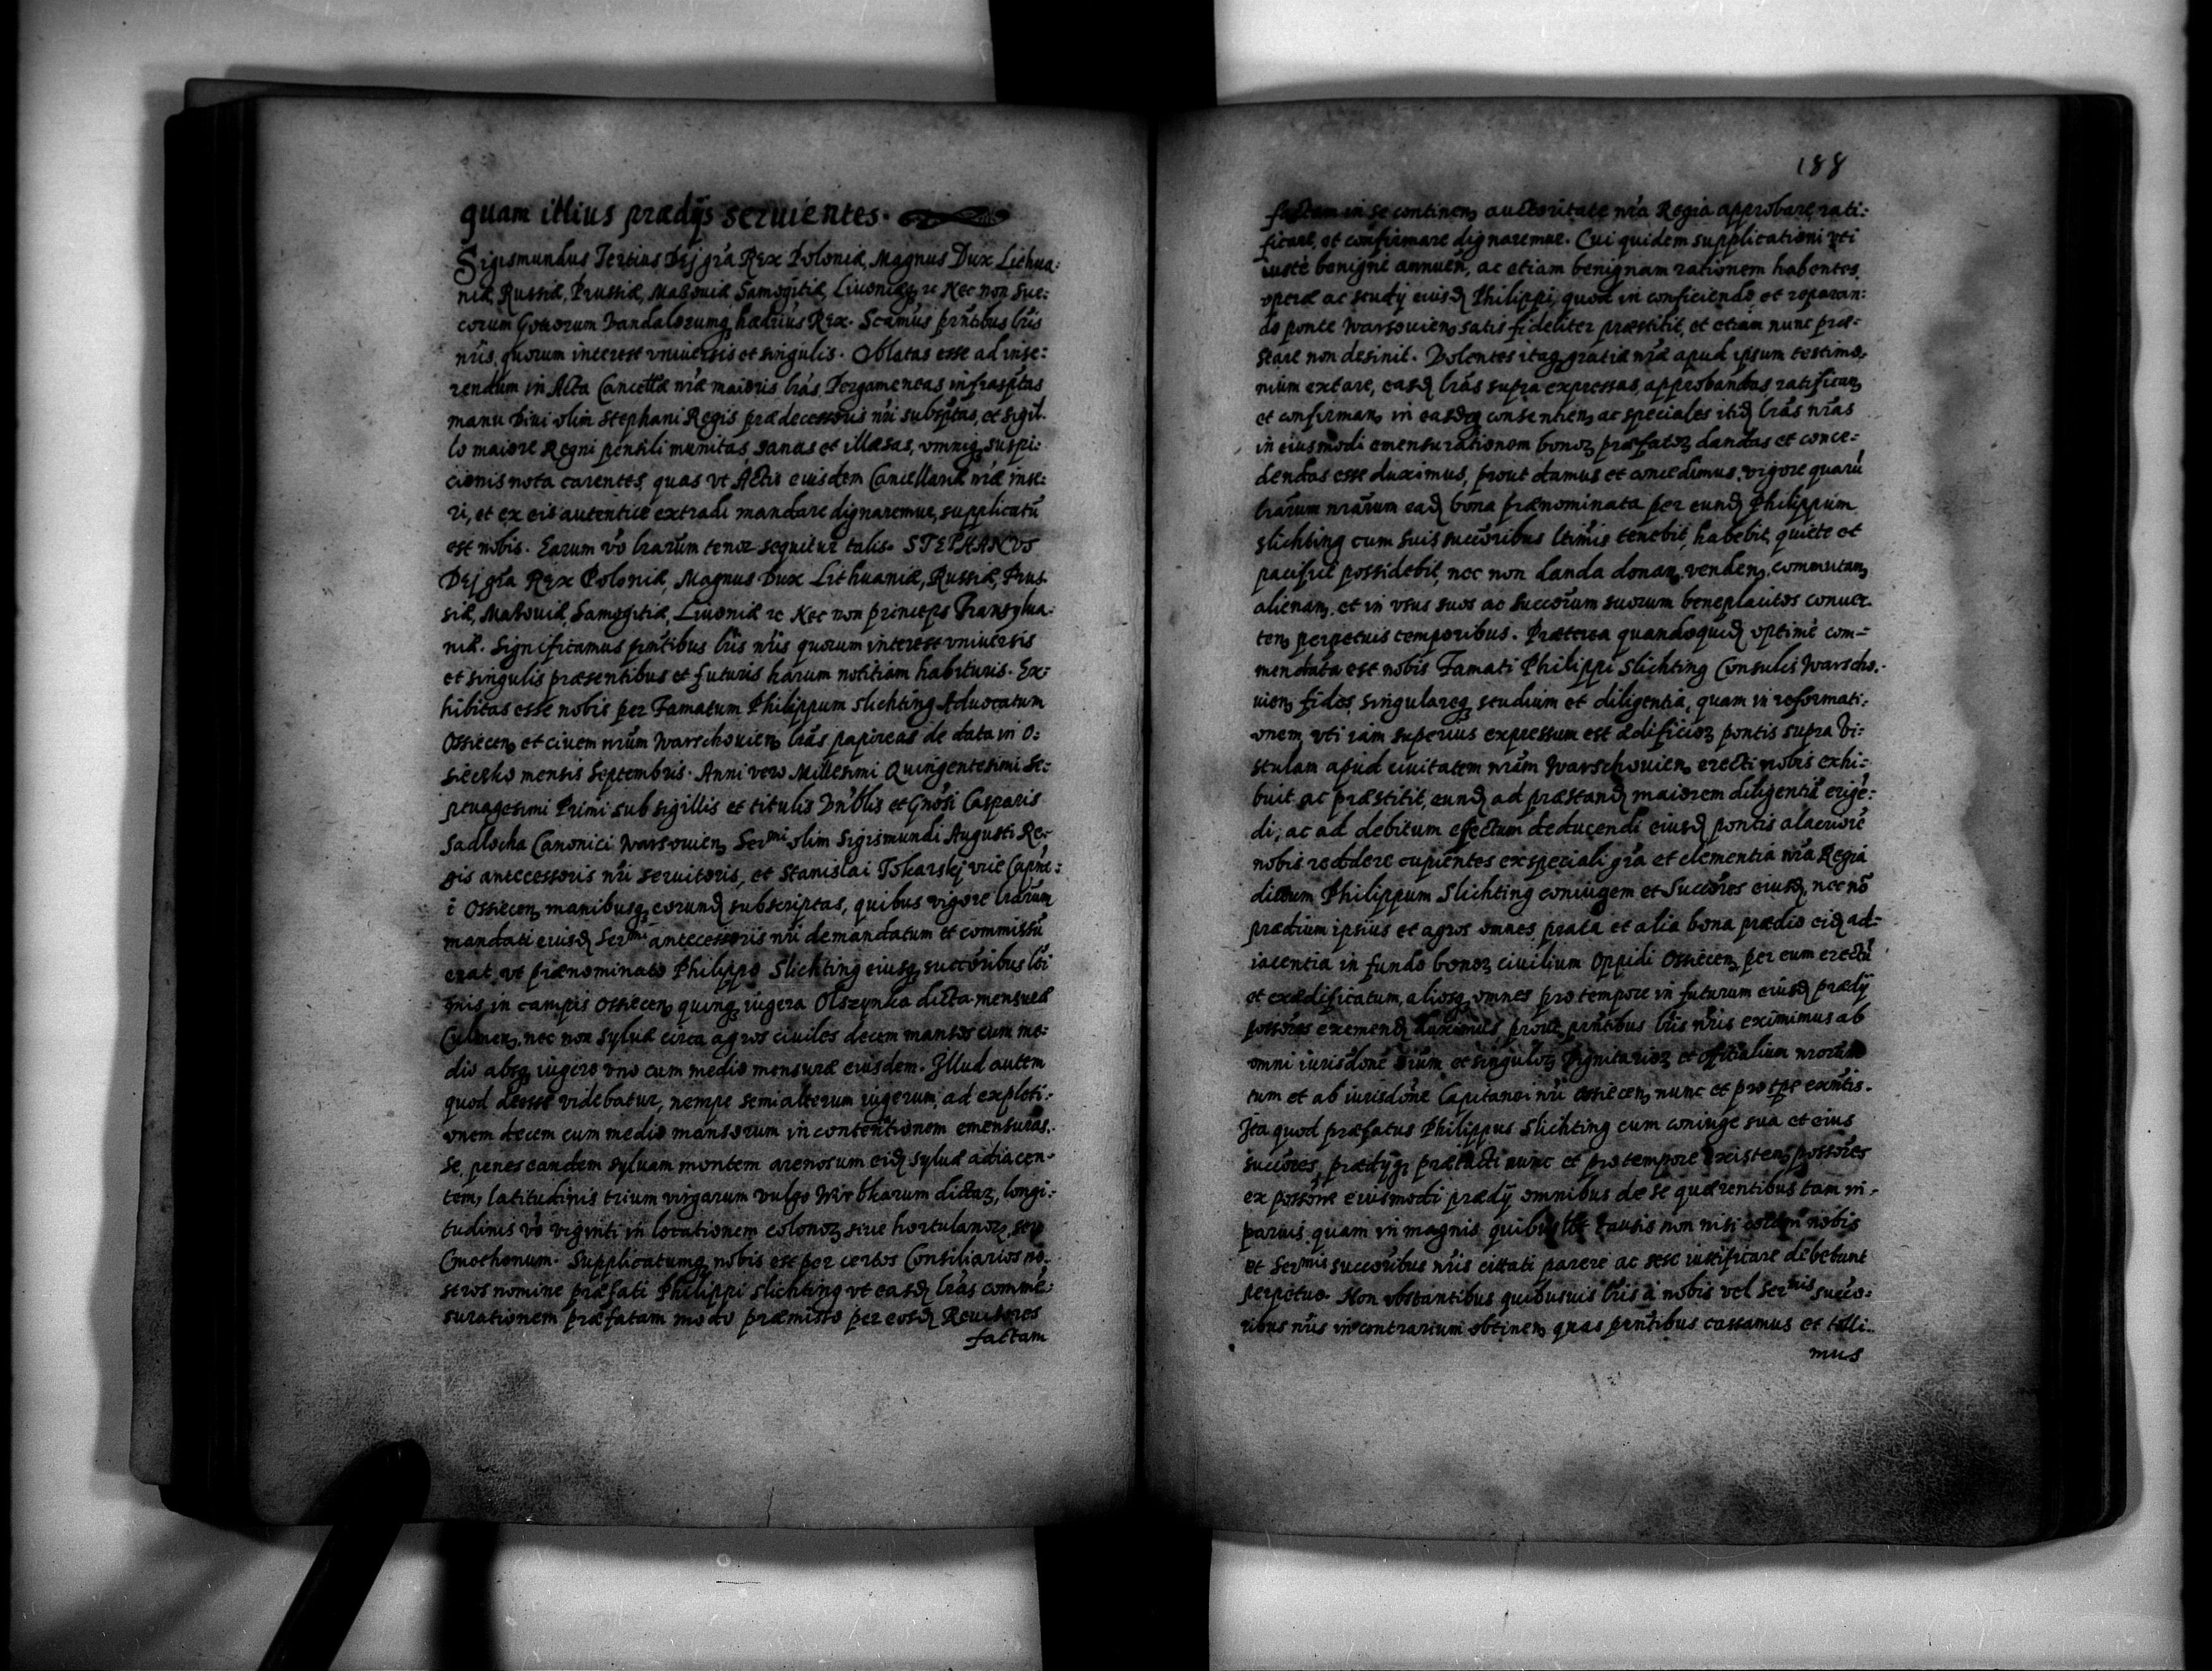 quam illius prædijs seruientes.
Sigismundus Tertius Dej gra Rex Poloniæ, Magnus Dux Lithua:
niæ, Russiæ, Prussiæ, Masouiæ, Samogitiæ, Liuoniæq, rc Nec non Sue:
corum Gottorum Vandalorumq hædrius Rex. Scimus pntibus lris
nris, quorum interest vniuersis et singulis. Oblatas esse ad inse:
rendum in Acta Cancellæ nræ maioris lras Pergameneas infrasptas
manu Diui olim Stephani Regis prædecessoris nri subsptas, et sigil-
lo maiore Regni pensili munitas, sanas et illæsas, omniq suspi:
cionis nota carentes, quas vt Actis eiusdem Cancellariæ nræ inse:
ri, et ex eis autentice extradi mandare dignaremur, supplicatu
est nobis. Earum vo lrarum tenor sequitur talis. STEPHANVS
Dej gra Rex Poloniæ, Magnus Dux Lithuaniæ, Russiæ, Prus-
siæ, Masouiæ, Samogitiæ, Liuoniæ rc Nec non princeps Transylua:
niæ. Significamus pntibus lris nris quorum interest vniuersis
et singulis præsentibus et futuris harum notitiam habituris. Ex:
hibitas esse nobis per Famatum Philippum Slichting Aduocatum
Ossiecen et ciuem nrum Warschouien lras papireas de data in O:
siecsko mensis Septembris. Anni vero Millesimi Quingentesimi Se:
ptuagesimi Primi sub sigillis et titulis Vnblis et Gnosi Casparis
Sadlocha Canonici Warsouien, Sermi olim Sigismundi Augusti Re-
gis antecessoris nri seruitoris, et Stanislai Tokarskj vice Capne:
i Ossiecen manibusq eorund subscriptas, quibus vigore lrarum
mandati eiusd Sermi antecessoris nri demandatum et commissu
erat, vt prænominato Philippo Slichting eiusq succoribus lti
mis in campis Ossiecen quinq iugera Olszynka dicta mensuræ
Culmen, nec non syluæ circa agros ciuiles decem mansos cum me:
dio absq iugero vno cum medio mensuræ eiusdem. Illud autem
quod deesse videbatur, nempe semialterum iugerum, ad expleti:
onem decem cum medio mansorum in contentionem emensuras.
se, penes eandem syluam montem arenosum eid syluæ adiacen-
tem, latitudinis trium virgarum vulgo Wierbkarum dictaz, longi:
tudinis vo viginti in locationem colonoz siue hortulanoz, seu
Cmethonum. Supplicatumq nobis est per certos Consiliarios no-
stros nomine præfati Philippi Slichting vt easd lras comme:
surationem præfatam modo præmisso per eosd Reuisores
factam
188
factam in se continen auctoritate nra Regia approbare, rati:
ficare, et confirmare dignaremur. Cui quidem supplicationi vti
iuste benigne annuen, ac etiam benignam rationem habentes,
operæ ac studij eiusd Philippi, quod in conficiendo et reparan:
do ponte Warsouien satis fideliter præstitit, et etiam nunc præ-
stare non desinit. Volentes itaq gratiæ nræ apud ipsum testimo.
nium extare, easd lras supra expressas, approbandas ratifican
et confirman in easdq consentien ac speciales itid lras nras
in eiusmodi emensurationem bonoz præfatoz dandas et conce:
dendas esse duximus, prout damus et concedimus, vigore quaru
lrarum nrarum ead bona prænominata per eund Philippum
Slichting cum suis succoribus ltimis tenebit, habebit, quiete et
pacifice possidebit, nec non danda donan, venden, commutan
alienan, et in vsus suos ac succorum suorum beneplacitos conuer.
ten perpetuis temporibus. Præterea quandoquid optime com=
mendata est nobis Famati Philippi Slichting Consulis Warscho.
uien fides, singulareq studium et diligentia, quam in reformati:
onem, vti iam superius expressum est ædificioz pontis supra Vi:
stulam apud ciuitatem nram Warschouien erecti nobis exhi:
buit ac præstitit, eund ad præstand maiorem diligentia erige:
di, ac ad debitum efectum deducendi eiusd pontis alacriore
nobis reddere cupientes ex speciali gra et clementia nra Regia
dictum Philippum Slichting coniugem et Succores eiusd, nec no
prædium ipsius et agros omnes prata et alia bona prædio eid ad-
iacentia in fundo bonoz ciuilium Oppidi Ossiecen, per eum erectu
et exædificatum, aliosq omnes pro tempore in futurum eiusd prædij
possores eximend duximus, prout pntibus lris nris eximimus ab
omni iurisdone oium et singuloz Dignitarioz et officialium nrorum
tum et ab iurisdone Capitanei nri Ossiecen, nunc et pro tpe exntis.
Ita quod præfatus Philippus Slichting cum coniuge sua et eius
succores, prædijq prætacti nunc et pro tempore existen possores
ex possone eiusmodi prædij omnibus de se quærentibus tam in
paruis quam in magnis quibuslbt causis non nisi coram nobis
et Sermis succoribus nris citati parere ac sese iustificare debebunt
perpetuo. Non obstantibus quibusuis lris à nobis vel Sermis succo:
ribus nris in contrarium obtinen, quas pntibus cassamus et tolli-
mus